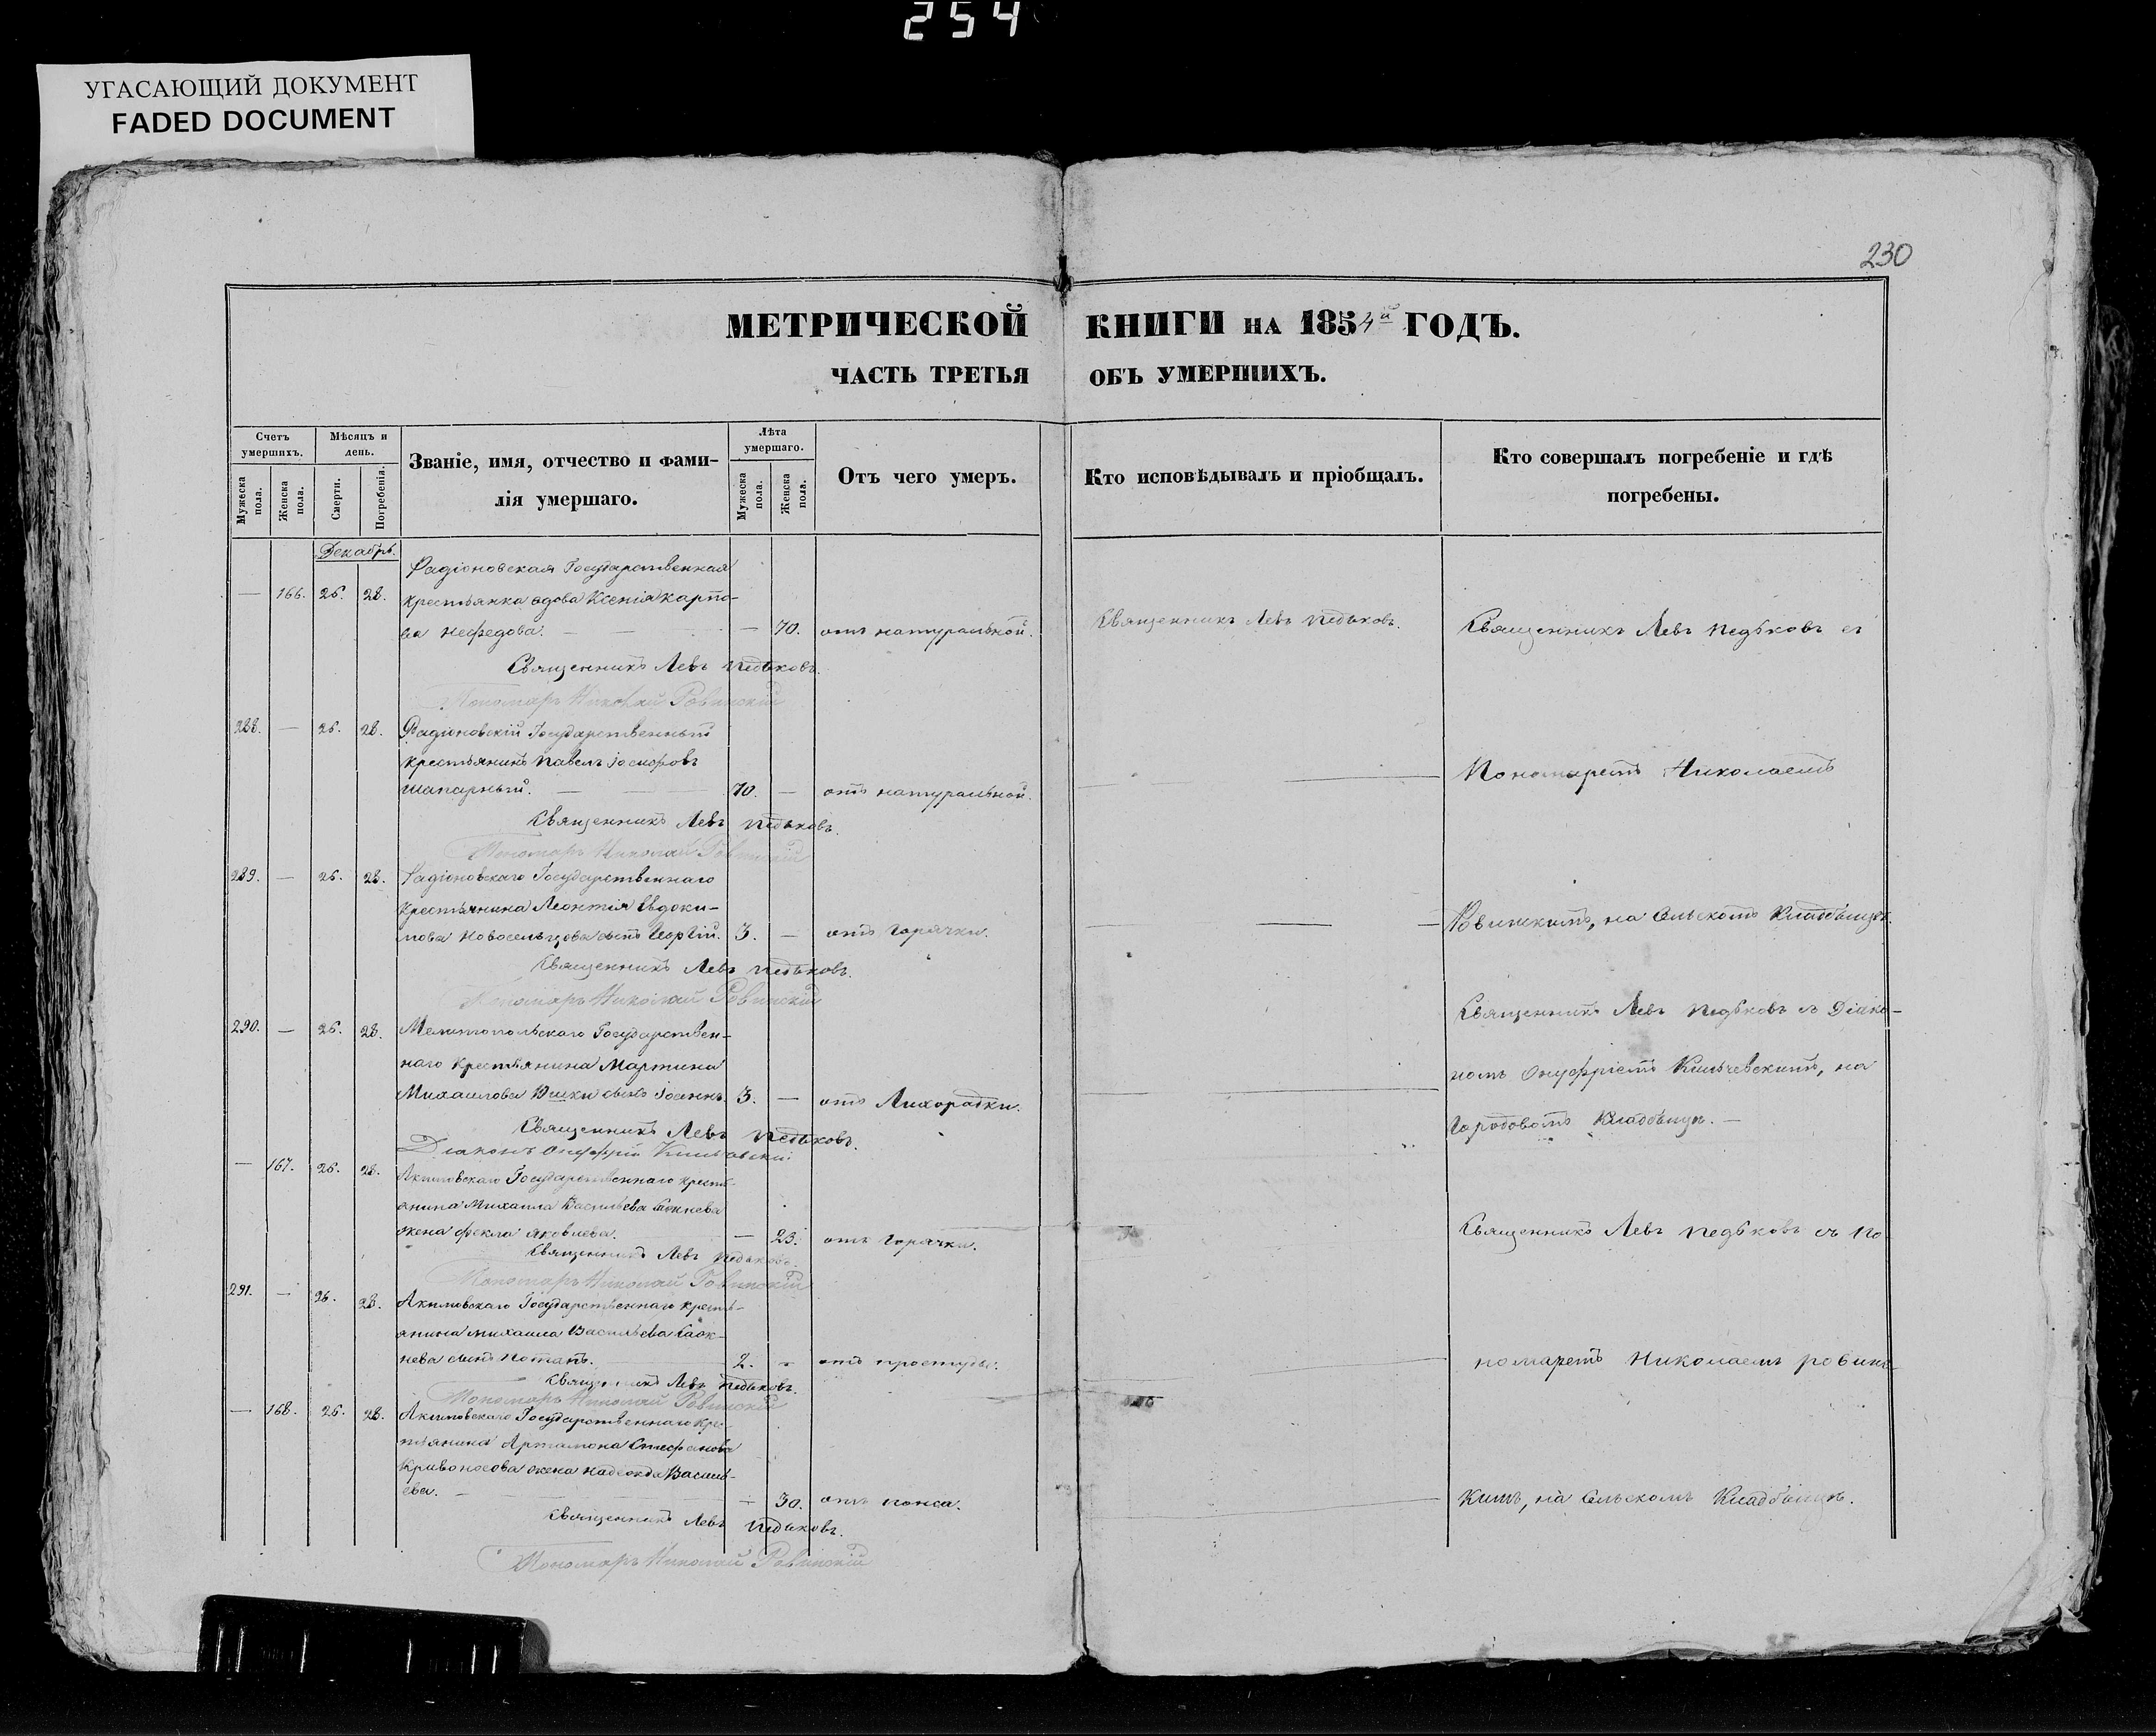 254
УГАСАЮЩИЙ ДОКУМЕНТ
FADED DOCUMENT
230
МЕТРИЧЕСКОЙ КНИГИ НА 1854й ГОДЪ.
ЧАСТЬ ТРЕТЬЯ ОБЪ УМЕРШИХЪ.
Счетъ умершихъ.
Мужеска пола.
Женска пола.
Мѣсяцъ и день.
Смерти.
Погребенія.
Званіе, имя, отчество и фами-
лія умершаго.
Лѣта умершаго.
Мужеска пола.
Женска пола.
Отъ чего умеръ.
Кто исповѣдывалъ и пріобщалъ.
Кто совершалъ погребеніе и гдѣ
погребены.
Декабрь.
Радіоновская Государственная
— 166. 26. 28. крестьянка вдова Ксенія Карпо-
ва Нефедова. — — 70. отъ натуральной. Священникъ Левъ Педьковъ. Священникъ Левъ Педьковъ съ
Священникъ Левъ Педьковъ.
Пономарь Николай Ровинскій
288. — 26. 28. Радіоновскій Государственный
крестьянинъ Павелъ Іосифовъ
Шапарный. — 70. — отъ натуральной. — Пономаремъ Николаемъ
Священникъ Левъ Педьковъ.
Пономарь Николай Ровинскій
289. — 26. 28. Радіоновскаго Государственнаго
крестьянина Леонтія Евдоки-
мова Новосельцова сынъ Георгій. 3. — отъ горячки. — Ровинскимъ, на Сельскомъ Кладбищѣ
Священникъ Левъ Педьковъ.
Пономарь Николай Ровинскій
290. — 26. 28. Мелитопольскаго Государствен-
наго крестьянина Мартина
Михаилова Юшки сынъ Іоаннъ. 3. — отъ Лихорадки. —
Священникъ Левъ Педьковъ.
Діаконъ Онуфрій
Священникъ Левъ Педьковъ съ Діако-
номъ Онуфріемъ Кильчевскимъ, на
Городовомъ Кладбищѣ. —
— 167. 26. 28. Акимовскаго Государственнаго крестъ-
янина Михаила Васильева
жена Фекла Яковлева. — 23. отъ горячки. Священникъ Левъ Педьковъ съ По
Священникъ Левъ Педьковъ.
Пономарь Николай Ровинскій
291. — 26. 28. Акимовскаго Государственнаго кресть-
янина Михаила Васильева
нева сынъ Потапъ. 2. — отъ простуды. — номаремъ Николаемъ Ровинс-
Священникъ Левъ Педьковъ.
Пономарь Николай Ровинскій
— 168. 26. 28. Акимовскаго Государственнаго кре-
тьянина Артамона Стефанова
Кривоносова жена Надежда Василь-
ева. — — 30. отъ поноса. — кимъ, на Сельскомъ Кладбищѣ.
Священникъ Левъ Педьковъ.
Пономарь Николай Ровинскій